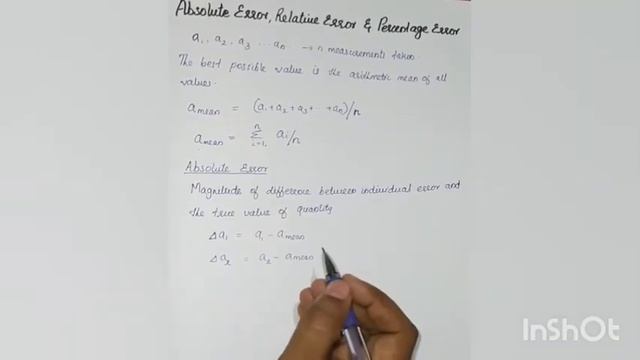 Absolute Error, Relative Error & Percentage Error
a₁, a₂, a₃ ... aₙ → n measurements taken.
The best possible value is the arithmetic mean of all
values.
a mean = (a₁+a₂+a₃+...+aₙ)/n
a mean = Σ aᵢ/n
n
i=1
Absolute Error
Magnitude of difference between individual error and
the true value of quantity
Δa₁ = a₁ - a mean
Δa₂ = a₂ - a mean
InShOt